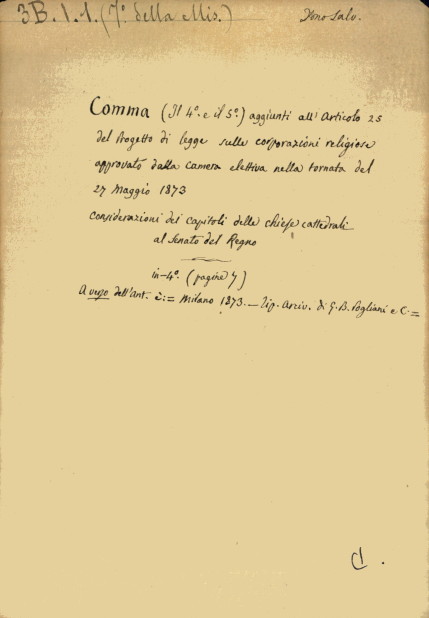 3B.1.1 (7.° della Mis.)
Dono Salv.
Comma (Il 4.° e il 5.°) aggiunti all' Articolo 25
del Progetto di legge sulle corporazioni religiose
approvato dalla Camera elettiva nella tornata del
27 Maggio 1873
considerazioni dei capitoli delle chiese cattedrali
al Senato del Regno
in-4.° (pagine 7)
A verso dell'Ant. è:= Milano 1873.— Tip. Arciv. di G. B. Pogliani e C.=